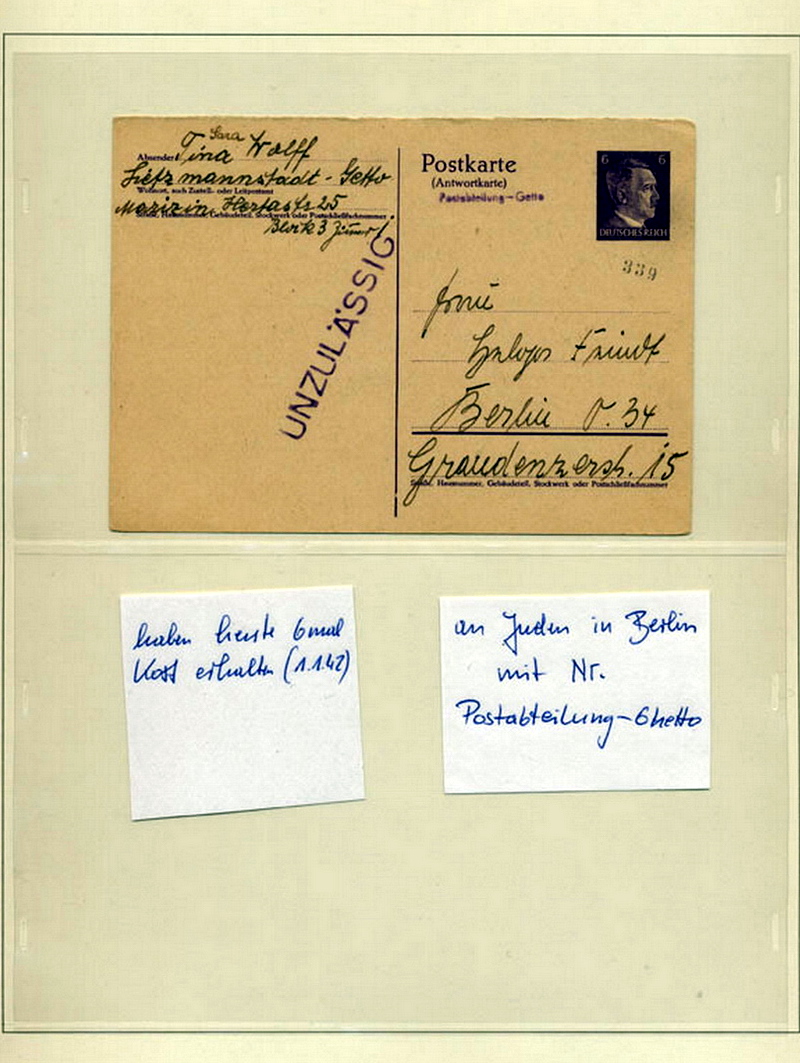 Sara
Absender: Tina Wolff
Litzmannstadt - Getto
Wohnort, auch Zustell- oder Leitpostamt
25
Straße, Hausnummer, Gebäudeteil, Stockwerk oder Postschließfachnummer
Block 3
UNZULÄSSIG
Postkarte
(Antwortkarte)
Postabteilung-Getto
6 6
DEUTSCHES REICH
339
Frau
Berlin O. 34
Graudenzerstr. 15
Straße, Hausnummer, Gebäudeteil, Stockwerk oder Postschließfachnummer
haben heute 6 mal
erhalten (1.1.42)
an Juden in Berlin
mit Nr.
Postabteilung-Ghetto